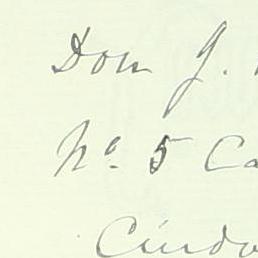 Don J.
No. 5 Ca
Ciudo